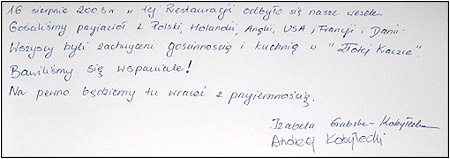 16 sierpnia 2003 r w tej Restauracji odbyło się nasze wesele.
Gościliśmy przyjaciół z Polski, Holandii, Anglii, USA i Francji i Danii.
Wszyscy byli zachwyceni gościnnością i kuchnią w "Złotej Kaczce"
Bawiliśmy się wspaniale!
Na pewno będziemy tu wracać z przyjemnością.
Izabela Kobyłecka
Andrzej Kobyłecki